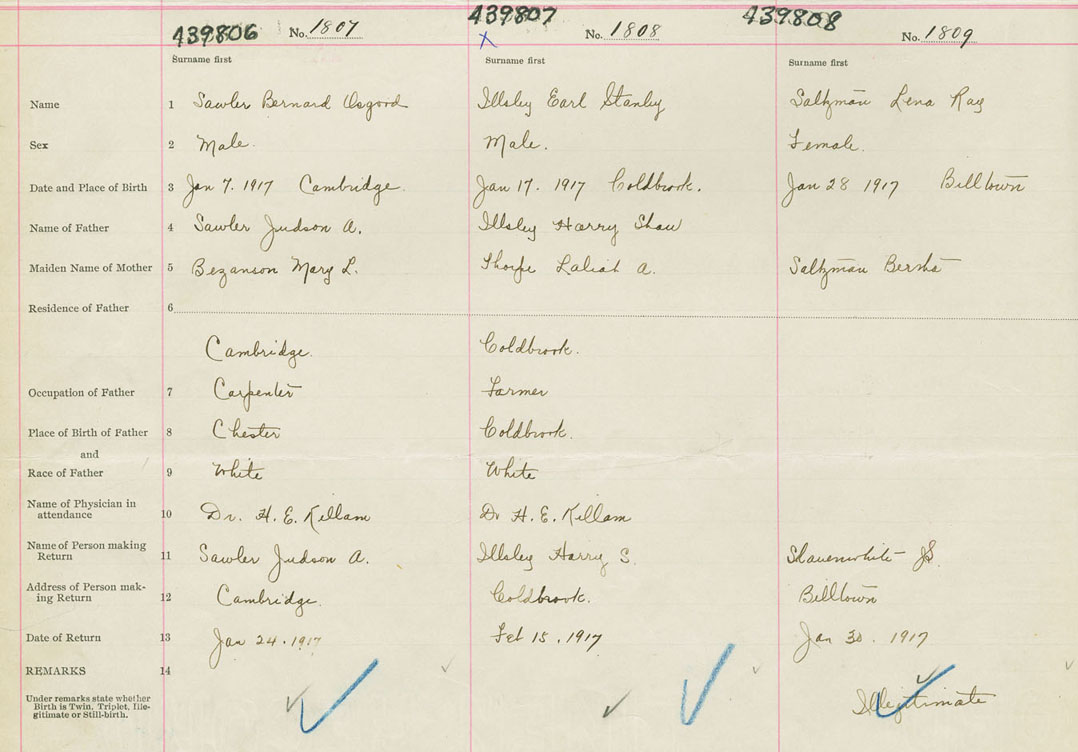 439806 No. 1807 439807 No. 1808 439808 No. 1809
X
Surname first Surname first Surname first
Name 1 Sawler Bernard Osgood Illsley Earl Stanly Saltzman Lena Ray
Sex 2 Male. Male. Female.
Date and Place of Birth 3 Jan 7. 1917 Cambridge. Jan 17. 1917 Coldbrook. Jan 28 1917 Billtown
Name of Father 4 Sawler Judson A. Illsley Harry Shaw
Maiden Name of Mother 5 Bezanson Mary L. Thorpe Laliah A. Saltzman Bertha
Residence of Father 6
Cambridge. Coldbrook.
Occupation of Father 7 Carpenter Farmer
Place of Birth of Father 8 Chester Coldbrook.
and
Race of Father 9 White White
Name of Physician in
attendance 10 Dr. H. E. Killam Dr H. E. Killam
Name of Person making
Return 11 Sawler Judson A. Illsley Harry S. JS.
Address of Person mak-
ing Return 12 Cambridge. Coldbrook. Billtown
Date of Return 13 Jan 24. 1917 Feb 15. 1917 Jan 30. 1917
REMARKS 14
Under remarks state whether
Birth is Twin, Triplet, Ille-
gitimate or Still-birth. Illegitimate